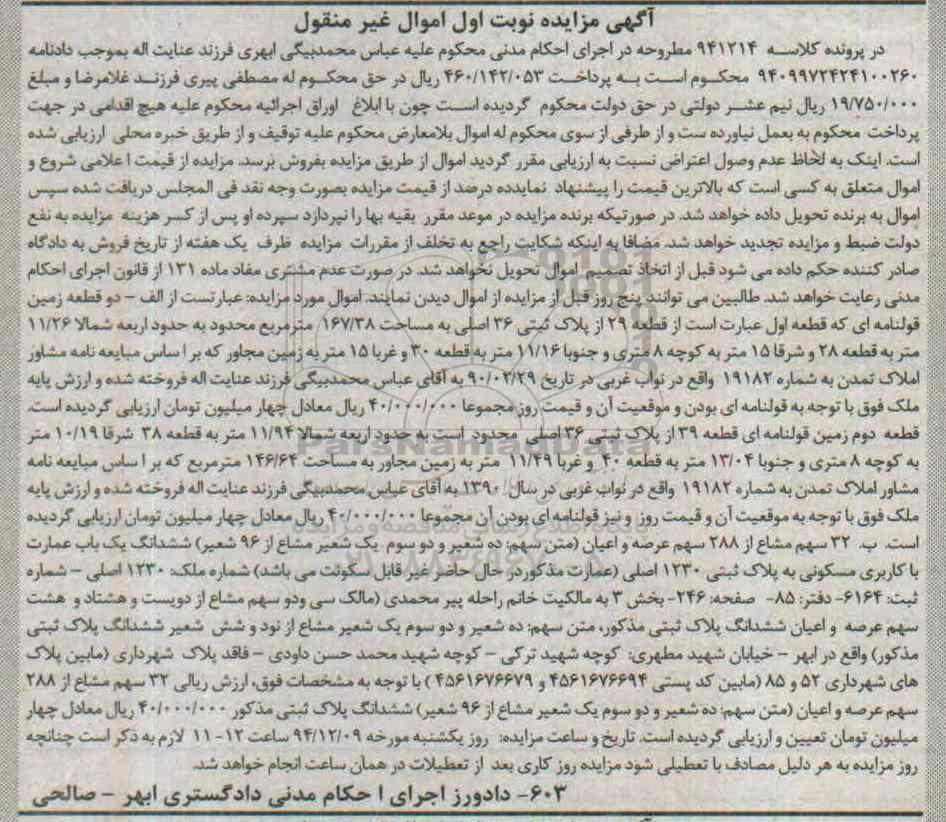 آگهی مزایده نوبت اول اموال غیر منقول
در پرونده کلاسه ۹۴۱۲۱۴ مطروحه در اجرای احکام مدنی محکوم علیه عباس محمدبیگی ابهری فرزند عنایت اله بموجب دادنامه
۹۴۰۹۹۷۲۴۲۴۱۰۰۲۶۰ محکوم است به پرداخت ۴۶۰/۱۴۲/۰۵۳ ریال در حق محکوم له مصطفی پیری فرزند غلامرضا و مبلغ
۱۹/۷۵۰/۰۰۰ ریال نیم عشر دولتی در حق دولت محکوم گردیده است چون با ابلاغ اوراق اجرائیه محکوم علیه هیچ اقدامی در جهت
پرداخت محکوم به بعمل نیاورده ست و از طرفی از سوی محکوم له اموال بلامعارض محکوم علیه توقیف و از طریق خبره محلی ارزیابی شده
است. اینک به لحاظ عدم وصول اعتراض نسبت به ارزیابی مقرر گردید اموال از طریق مزایده بفروش برسد. مزایده از قیمت اعلامی شروع و
اموال متعلق به کسی است که بالاترین قیمت را پیشنهاد نمایدده درصد از قیمت مزایده بصورت وجه نقد فی المجلس دریافت شده سپس
اموال به برنده تحویل داده خواهد شد. در صورتیکه برنده مزایده در موعد مقرر بقیه بها را نپردازد سپرده او پس از کسر هزینه مزایده به نفع
دولت ضبط و مزایده تجدید خواهد شد. مضافا به اینکه شکایت راجع به تخلف از مقررات مزایده ظرف یک هفته از تاریخ فروش به دادگاه
صادر کننده حکم داده می شود قبل از اتخاذ تصمیم اموال تحویل نخواهد شد. در صورت عدم مشتری مفاد ماده ۱۳۱ از قانون اجرای احکام
مدنی رعایت خواهد شد. طالبین می توانند پنج روز قبل از مزایده از اموال دیدن نمایند. اموال مورد مزایده: عبارتست از الف - دو قطعه زمین
قولنامه ای که قطعه اول عبارت است از قطعه ۲۹ از پلاک ثبتی ۳۶ اصلی به مساحت ۱۶۷/۳۸ مترمربع محدود به حدود اربعه شمالا ۱۱/۲۶
متر به قطعه ۲۸ و شرقا ۱۵ متر به کوچه ۸ متری و جنوبا ۱۱/۱۶ متر به قطعه ۳۰ و غربا ۱۵ متر به زمین مجاور که بر اساس مبایعه نامه مشاور
املاک تمدن به شماره ۱۹۱۸۲ واقع در نواب غربی در تاریخ ۹۰/۰۲/۲۹ به آقای عباس محمدبیگی فرزند عنایت اله فروخته شده و ارزش پایه
ملک فوق با توجه به قولنامه ای بودن و موقعیت آن و قیمت روز مجموعا ۴۰/۰۰۰/۰۰۰ ریال معادل چهار میلیون تومان ارزیابی گردیده است.
قطعه دوم زمین قولنامه ای قطعه ۳۹ از پلاک ثبتی ۳۶ اصلی محدود است به حدود اربعه شمالا ۱۱/۹۴ متر به قطعه ۳۸ شرقا ۱۰/۱۹ متر
به کوچه ۸ متری و جنوبا ۱۳/۰۴ متر به قطعه ۴۰ و غربا ۱۱/۴۹ متر به زمین مجاور به مساحت ۱۴۶/۶۴ مترمربع که بر اساس مبایعه نامه
مشاور املاک تمدن به شماره ۱۹۱۸۲ واقع در نواب غربی در سال ۱۳۹۰ به آقای عباس محمدبیگی فرزند عنایت اله فروخته شده و ارزش پایه
ملک فوق با توجه به موقعیت آن و قیمت روز و نیز قولنامه ای بودن آن مجموعا ۴۰/۰۰۰/۰۰۰ ریال معادل چهار میلیون تومان ارزیابی گردیده
است. ب. ۳۲ سهم مشاع از ۲۸۸ سهم عرصه و اعیان (متن سهم: ده شعیر و دو سوم یک شعیر مشاع از ۹۶ شعیر) ششدانگ یک باب عمارت
با کاربری مسکونی به پلاک ثبتی ۱۲۳۰ اصلی (عمارت مذکور در حال حاضر غیر قابل سکونت می باشد) شماره ملک: ۱۲۳۰ اصلی - شماره
ثبت: ۶۱۶۴- دفتر: ۸۵- صفحه: ۲۴۶- بخش ۳ به مالکیت خانم راحله پیر محمدی (مالک سی ودو سهم مشاع از دویست و هشتاد و هشت
سهم عرصه و اعیان ششدانگ پلاک ثبتی مذکور، متن سهم: ده شعیر و دو سوم یک شعیر مشاع از نود و شش شعیر ششدانگ پلاک ثبتی
مذکور) واقع در ابهر - خیابان شهید مطهری: کوچه شهید ترکی - کوچه شهید محمد حسن داودی - فاقد پلاک شهرداری (مابین پلاک
های شهرداری ۵۲ و ۸۵ (مابین کد پستی ۴۵۶۱۶۷۶۶۹۴ و ۴۵۶۱۶۷۶۶۷۹ ) با توجه به مشخصات فوق، ارزش ریالی ۳۲ سهم مشاع از ۲۸۸
سهم عرصه و اعیان (متن سهم: ده شعیر و دو سوم یک شعیر مشاع از ۹۶ شعیر) ششدانگ پلاک ثبتی مذکور ۴۰/۰۰۰/۰۰۰ ریال معادل چهار
میلیون تومان تعیین و ارزیابی گردیده است. تاریخ و ساعت مزایده: روز یکشنبه مورخه ۹۴/۱۲/۰۹ ساعت ۱۲-۱۱ لازم به ذکر است چنانچه
روز مزایده به هر دلیل مصادف با تعطیلی شود مزایده روز کاری بعد از تعطیلات در همان ساعت انجام خواهد شد.
۶۰۳- دادورز اجرای احکام مدنی دادگستری ابهر - صالحی
ParsNamadData